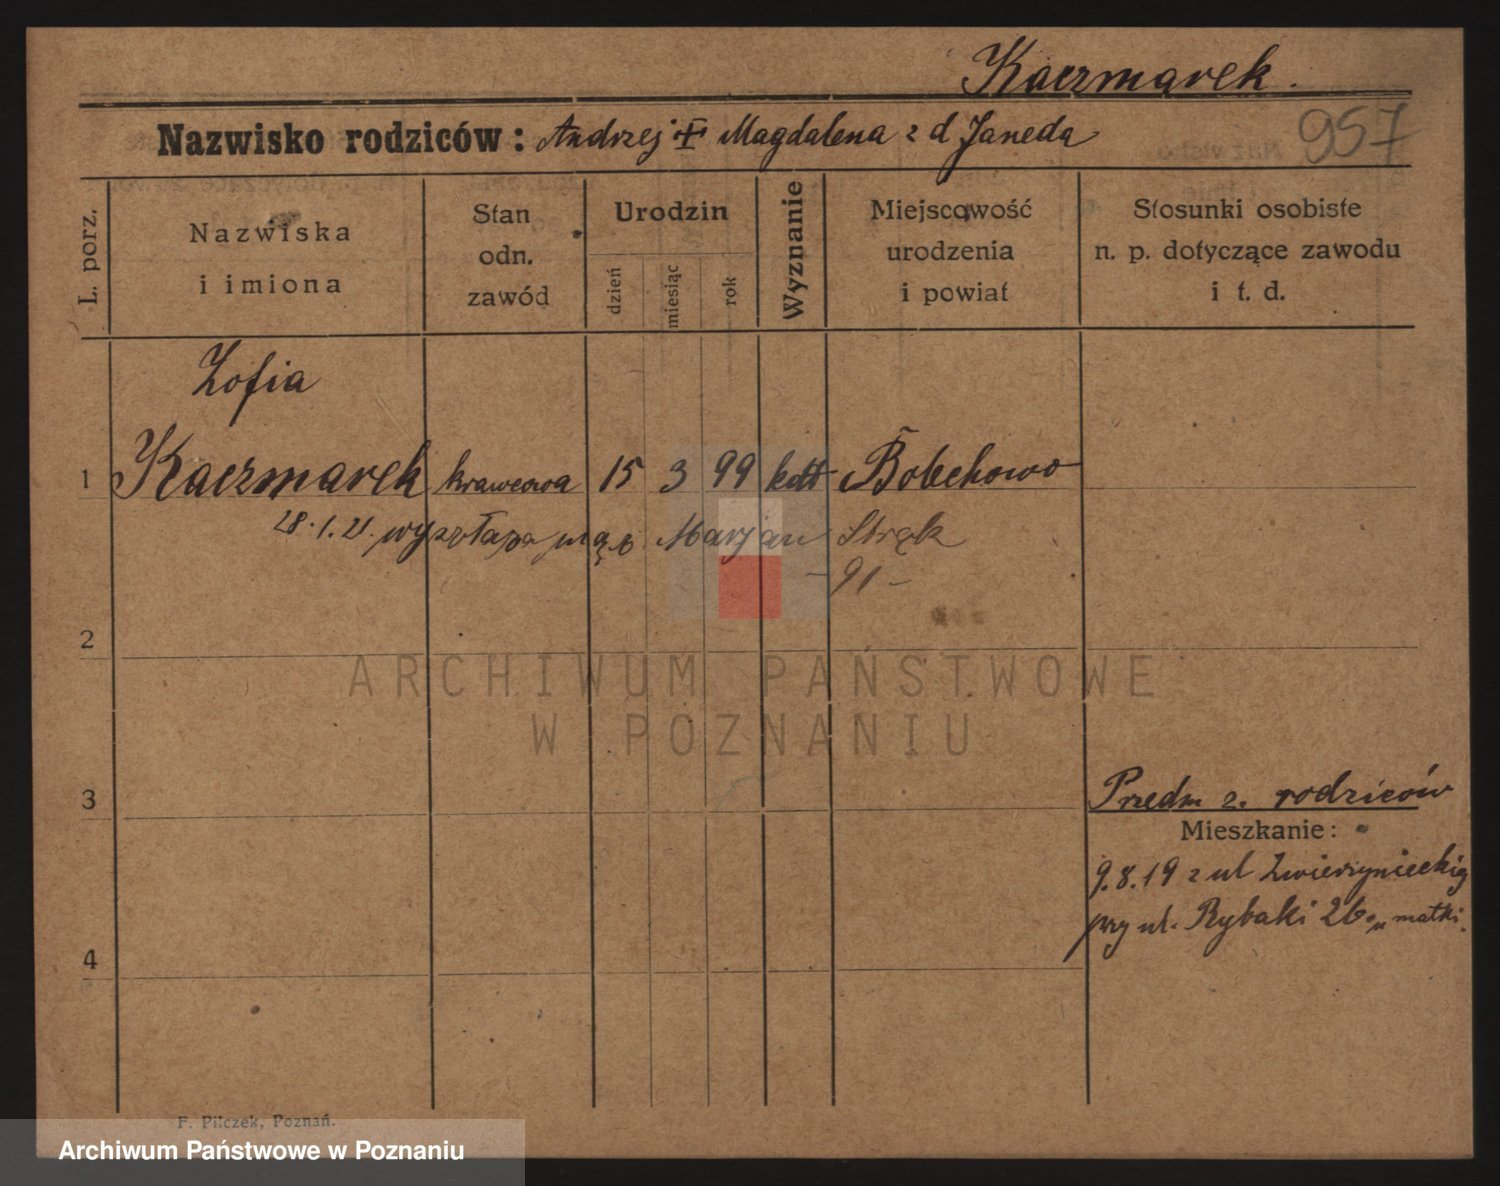 Kaczmarek.
Nazwisko rodziców: Andrzej ‡ Magdalena z d Janeda
957
L. porz.
Nazwiska
i imiona
Stan
odn.
zawód
Urodzin
dzień
miesiąc
rok
Wyznanie
Miejscowość
urodzenia
i powiat
Stosunki osobiste
n. p. dotyczące zawodu
i t. d.
Zofia
1 Kaczmarek krawcowa 15 3 99 kat Bobekowo
28.1.21. wyszła za mąż Marjan Strąk
-91-
2
ARCHIWUM PAŃSTWOWE
W POZNANIU
3
Przedm z. rodziców
Mieszkanie:
9.8.19 z ul Zwierzynieckiej
przy ul. Rybaki 26 u matki.
4
F. Pilczek, Poznań.
Archiwum Państwowe w Poznaniu